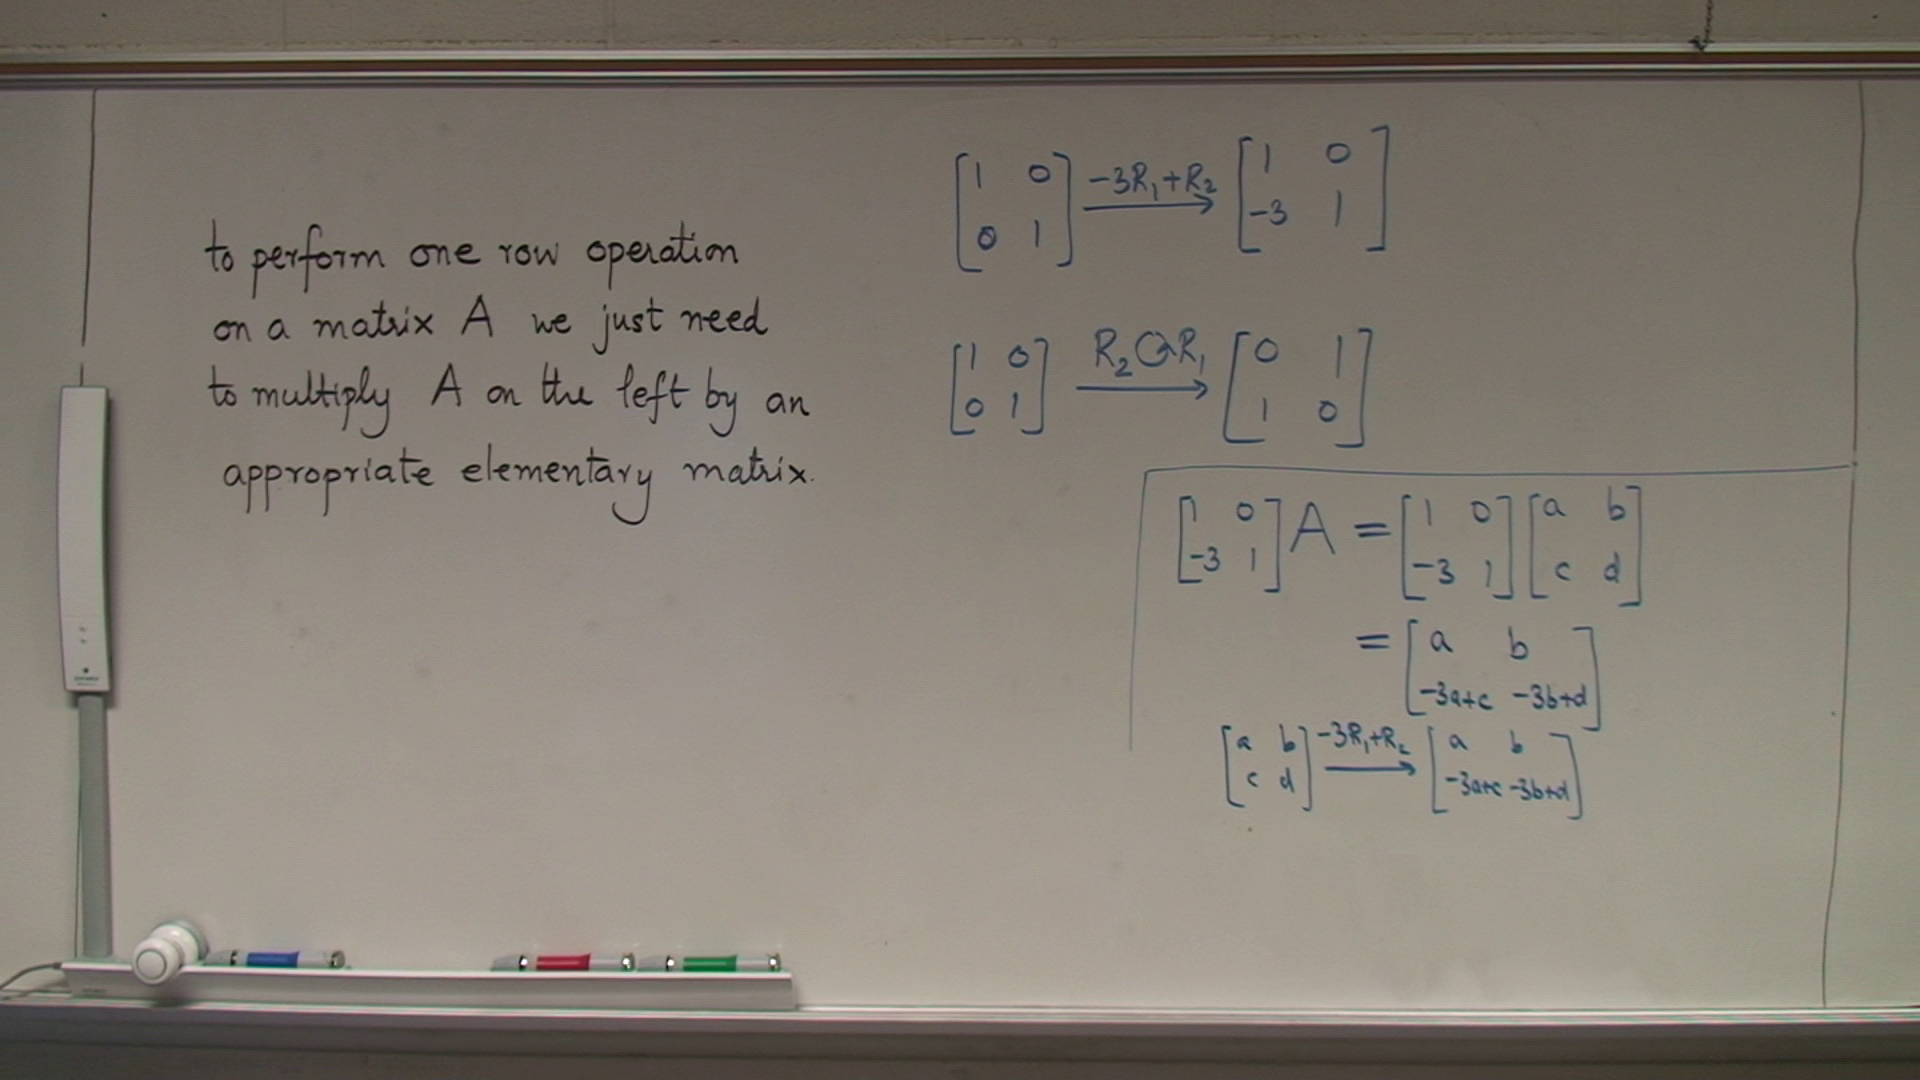 to perform one row operation
on a matrix A we just need
to multiply A on the left by an
appropriate elementary matrix.
[1 0; 0 1] -3R₁+R₂ → [1 0; -3 1]
[1 0; 0 1] R₂↔R₁ → [0 1; 1 0]
[1 0; -3 1] A = [1 0; -3 1] [a b; c d]
= [a b; -3a+c -3b+d]
[a b; c d] -3R₁+R₂ → [a b; -3a+c -3b+d]